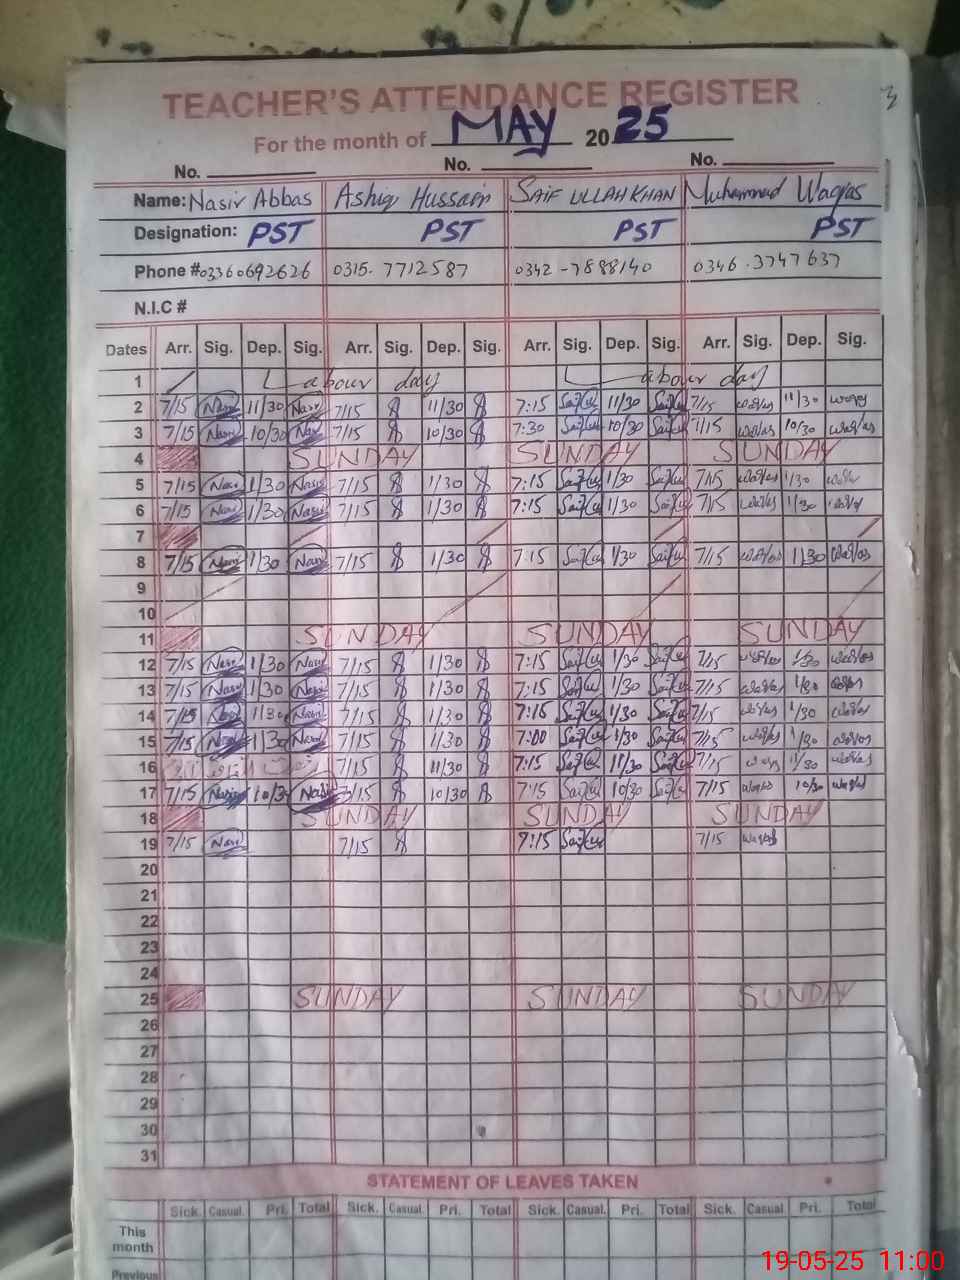 TEACHER'S ATTENDANCE REGISTER
For the month of MAY 2025
No. No. No.
Name: Nasir Abbas Ashiq Hussain SAIF ULLAH KHAN Muhammad Waqas
Designation: PST PST PST PST
Phone # 03360692626 0315-7712587 0342-7888140 0346.3747637
N.I.C #
Dates Arr. Sig. Dep. Sig. Arr. Sig. Dep. Sig. Arr. Sig. Dep. Sig. Arr. Sig. Dep. Sig.
1 Labour day Labour day
2 7/15 Nasir 11/30 Nasir 7/15 11/30 7:15 Saifullah 11/30 Saifullah 7/15 waqas 11/30 waqas
3 7/15 Nasir 10/30 Nasir 7/15 10/30 7:30 Saifullah 10/30 Saifullah 7/15 waqas 10/30 waqas
4 SUNDAY SUNDAY SUNDAY
5 7/15 Nasir 1/30 Nasir 7/15 1/30 7:15 Saifullah 1/30 Saifullah 7/15 waqas 1/30 waqas
6 7/15 Nasir 1/30 Nasir 7/15 1/30 7:15 Saifullah 1/30 Saifullah 7/15 waqas 1/30 waqas
7
8 7/15 Nasir 1/30 Nasir 7/15 1/30 7:15 Saifullah 1/30 Saifullah 7/15 waqas 1/30 waqas
9
10
11 SUNDAY SUNDAY SUNDAY
12 7/15 Nasir 1/30 Nasir 7/15 1/30 7:15 Saifullah 1/30 Saifullah 7/15 waqas 1/30 waqas
13 7/15 Nasir 1/30 Nasir 7/15 1/30 7:15 Saifullah 1/30 Saifullah 7/15 waqas 1/30 waqas
14 7/15 Nasir 1/30 Nasir 7/15 1/30 7:15 Saifullah 1/30 Saifullah 7/15 waqas 1/30 waqas
15 7/15 Nasir 1/30 Nasir 7/15 1/30 7:00 Saifullah 1/30 Saifullah 7/15 waqas 1/30 waqas
16 7/15 11/30 7:15 Saifullah 11/30 Saifullah 7/15 waqas 11/30 waqas
17 7/15 Nasir 10/3 Nasir 7/15 10/30 7:15 Saifullah 10/30 Saifullah 7/15 waqas 10/30 waqas
18 SUNDAY SUNDAY SUNDAY
19 7/15 Nasir 7/15 7:15 Saifullah 7/15 waqas
20
21
22
23
24
25 SUNDAY SUNDAY SUNDAY
26
27
28
29
30
31
STATEMENT OF LEAVES TAKEN
Sick. Casual. Pri. Total Sick. Casual. Pri. Total Sick. Casual. Pri. Total Sick. Casual. Pri. Total
This
month
Previous
19-05-25 11:00